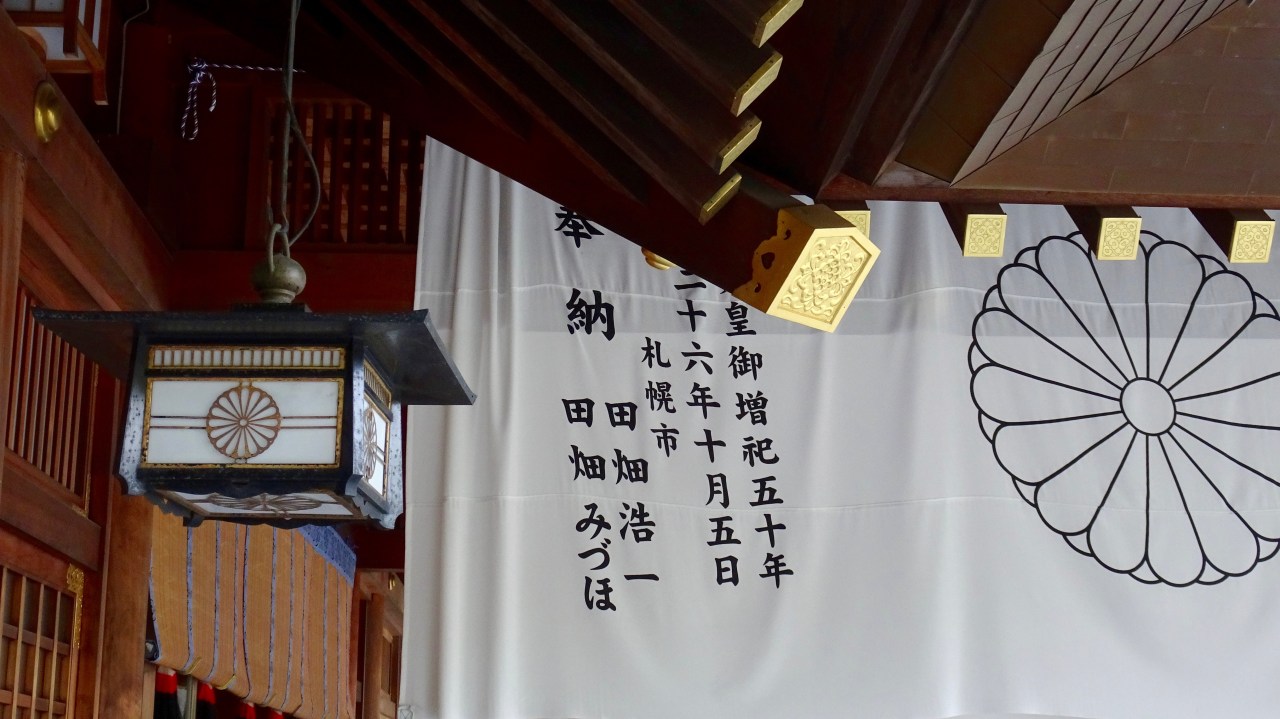 皇御増祀五十年
二十六年十月五日
札幌市
田畑浩一
田畑みづほ
奉納